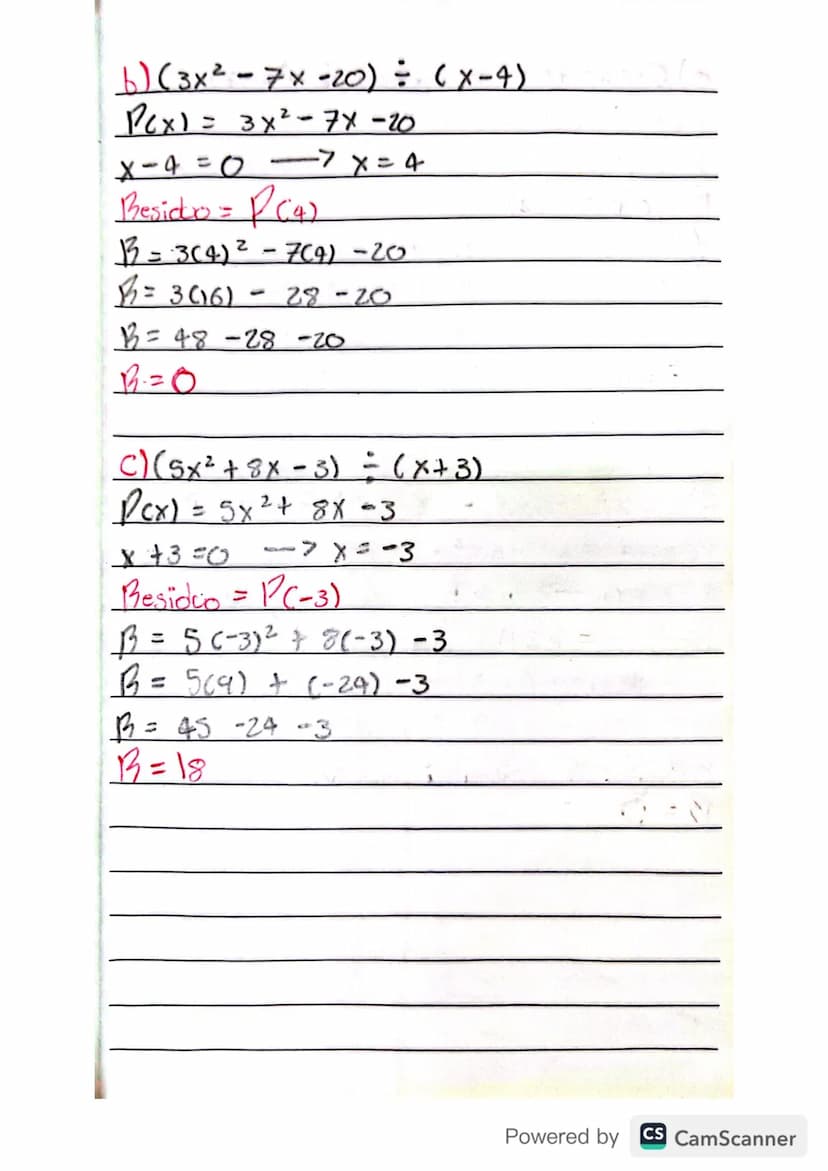 b) (3x² - 7x -20) ÷ (x-4)
P(x) = 3x² - 7x -20
x-4 = 0 → x = 4
Residuo = P(4)
R = 3(4)² - 7(4) -20
R = 3(16) - 28 -20
R = 48 -28 -20
R = 0
c) (5x² + 8x - 3) ÷ (x+3)
P(x) = 5x² + 8x -3
x +3 =0 → x = -3
Residuo = P(-3)
R = 5(-3)² + 8(-3) -3
R = 5(9) + (-24) -3
R = 45 -24 -3
R = 18
Powered by CS CamScanner